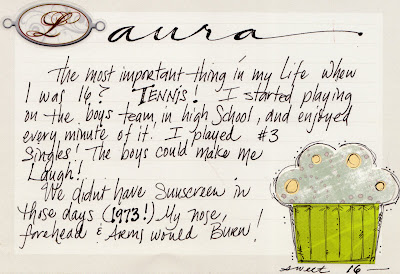 Laura
The most important thing in my Life when
I was 16? TENNIS! I started playing
on the boys team in high School, and enjoyed
every minute of it! I played #3
Singles! The boys could make me
Laugh!
We didnt have Sunscreen in
those days (1973!) My nose,
forehead & Arms would Burn!
sweet 16